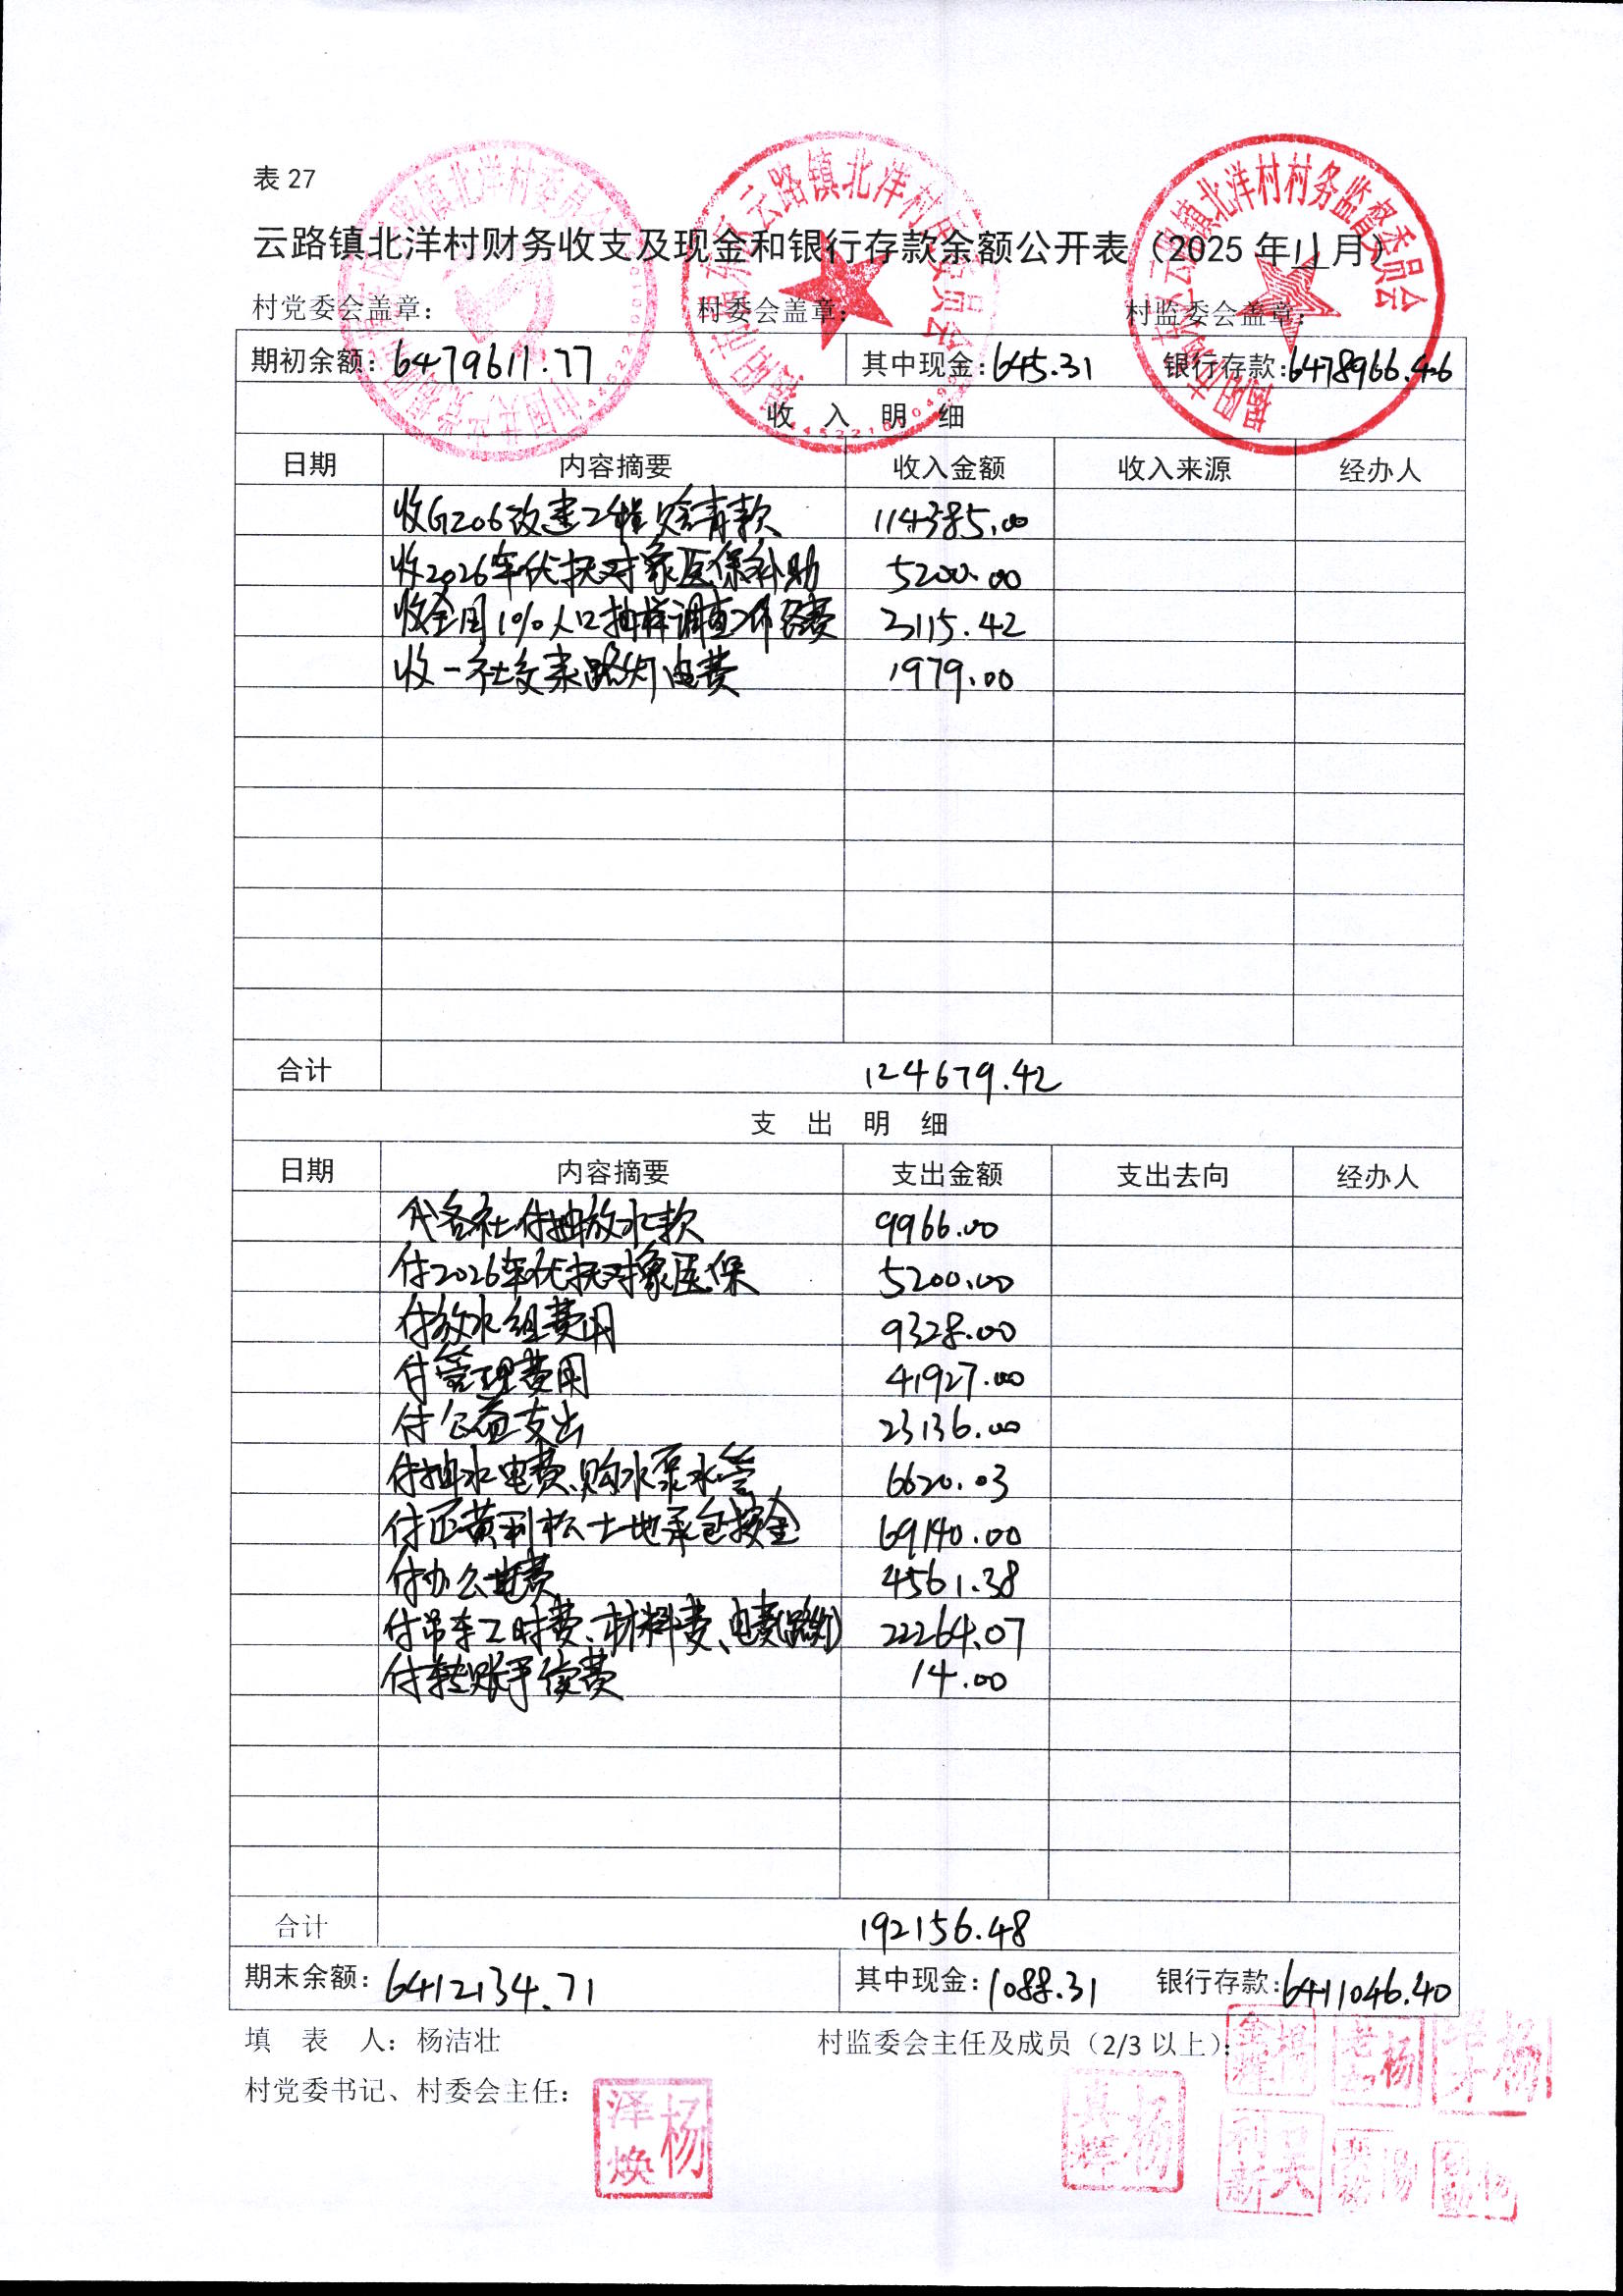 表 27
云路镇北洋村财务收支及现金和银行存款余额公开表（2025 年11月）
村党委会盖章： 村委会盖章： 村监委会盖章：
期初余额：6479611.77 其中现金：645.31 银行存款：6478966.46
收 入 明 细
日期 内容摘要 收入金额 收入来源 经办人
收G206改建工程 青款 114385.00
收2026年优抚对象医保补助 5200.00
收全国1%人口抽样调查工作经费 3115.42
收一社交来路灯电费 1979.00
合计 124679.42
支 出 明 细
日期 内容摘要 支出金额 支出去向 经办人
代各社付抽放水款 9966.00
付2026年优抚对象医保 5200.00
付放水组费用 9328.00
付管理费用 41927.00
付公益支出 23136.00
付抽水电费、购水泵水管 6620.03
付还黄利松土地承包按金 69140.00
付办公电费 4561.38
付吊车工时费、材料费、电费(路灯) 22264.07
付转账手续费 14.00
合计 192156.48
期末余额：6412134.71 其中现金：1088.31 银行存款：6411046.40
填 表 人：杨洁壮 村监委会主任及成员（2/3 以上）：
村党委书记、村委会主任：
杨泽焕